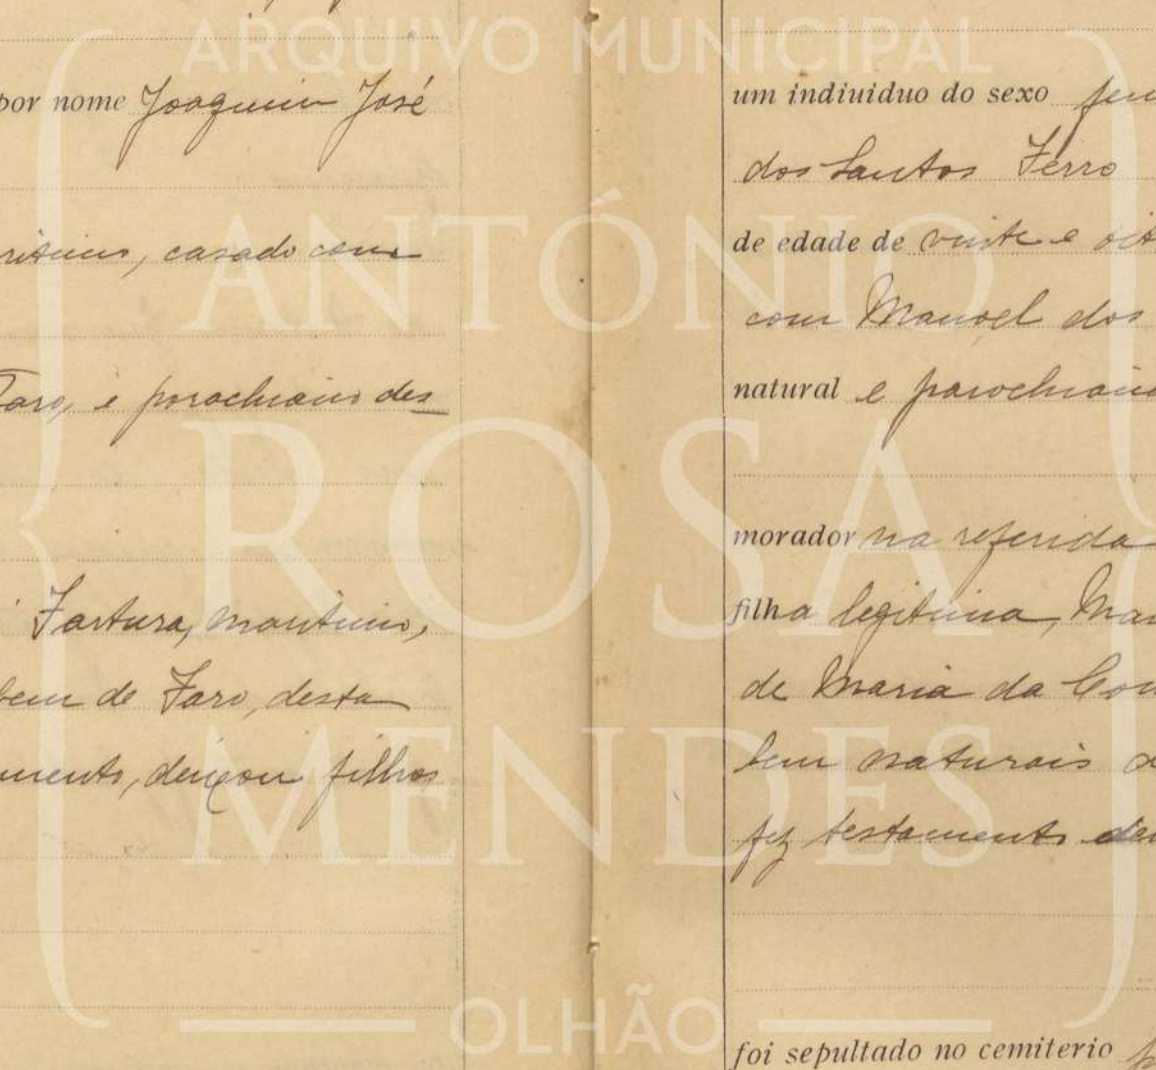 ARQUIVO MUNICIPAL
ANTÓNIO
ROSA
MENDES
OLHÃO
por nome Joaquim José
ritimo, casado com
Faro, e parochiano des
Fartura, maritimo,
bem de Faro, desta
mento, deixou filhos
um indiuiduo do sexo fem
dos Santos Ferro
de edade de vinte e oit
com Manoel dos
natural e parochiano
morador na referida
filha legitima, Man
de Maria da Con
bem naturais d
fez testamento dei
foi sepultado no cemiterio p